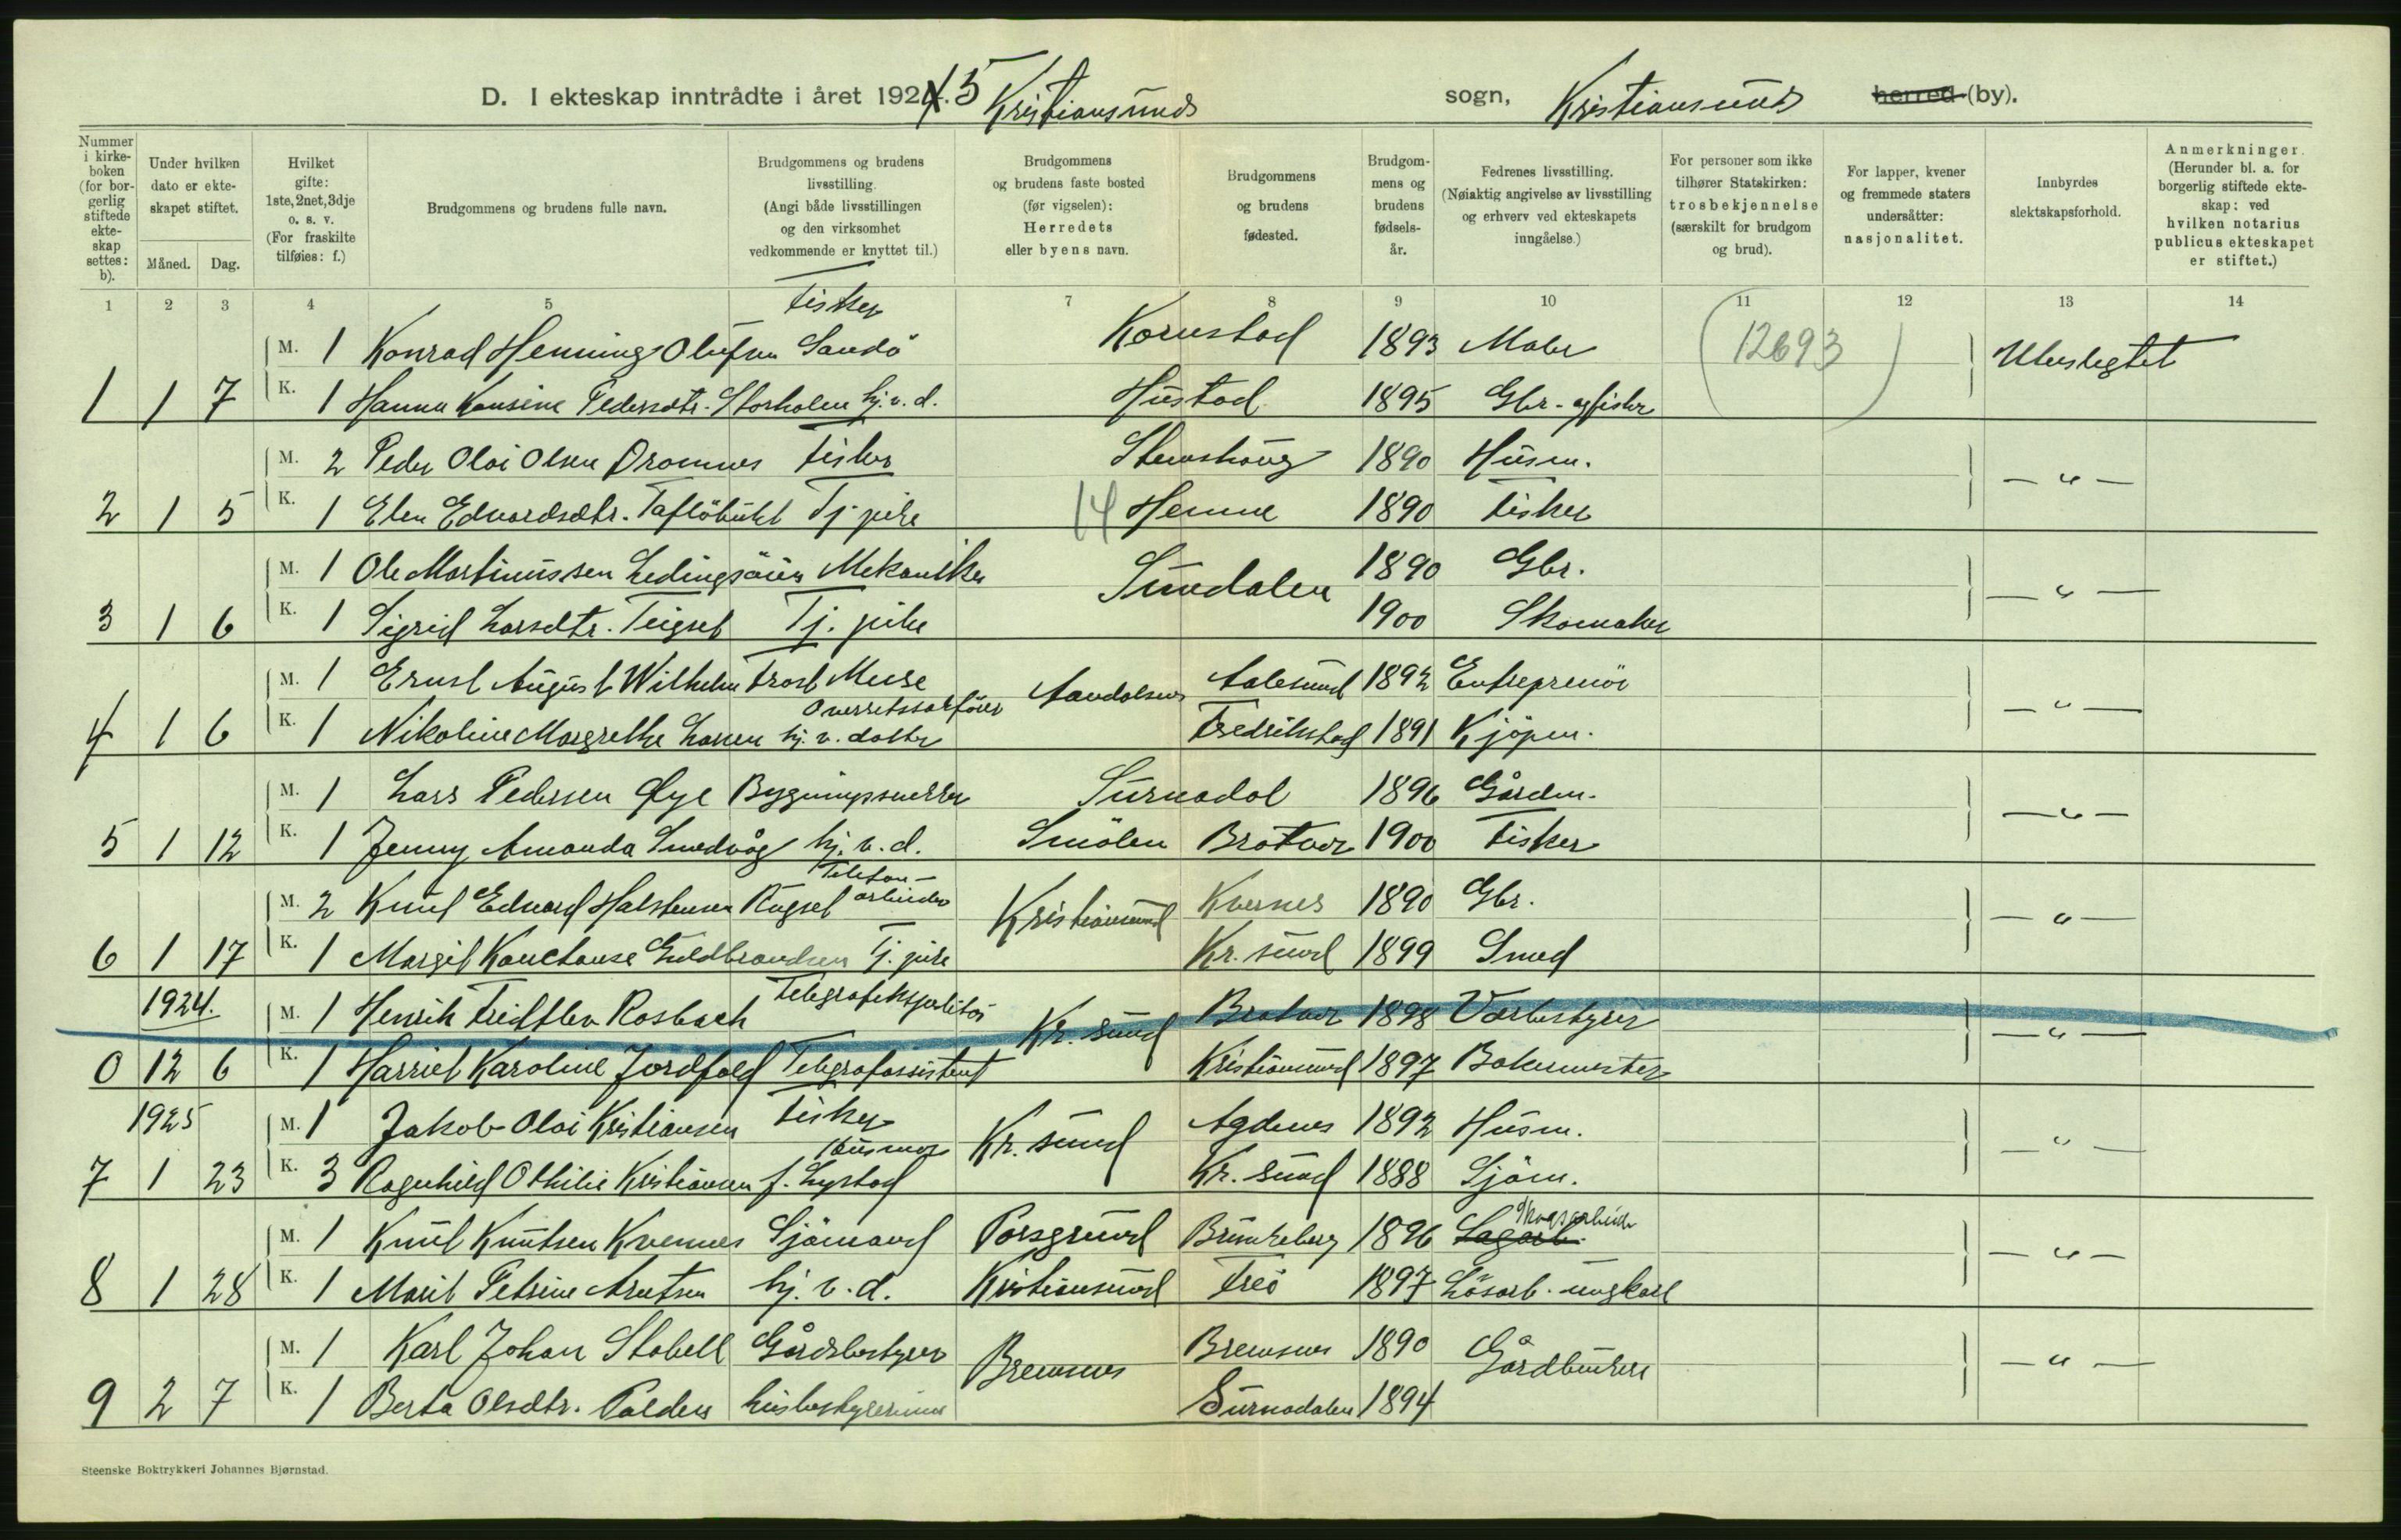 D. I ekteskap inntrådte i året 1924. 5 Kristiansund sogn, Kristiansund herred (by).
Nummer i kirkeboken (for borgerlig stiftede ekteskap settes: b).
Under hvilken dato er ekteskapet stiftet.
Måned. Dag.
Hvilket gifte: 1ste, 2net, 3dje o. s. v. (For fraskilte tilføies: f.)
Brudgommens og brudens fulle navn.
Brudgommens og brudens livsstilling. (Angi både livsstillingen og den virksomhet vedkommende er knyttet til.)
Brudgommens og brudens faste bosted (før vigselen): Herredets eller byens navn.
Brudgommens og brudens fødested.
Brudgommens og brudens fødselsår.
Fedrenes livsstilling. (Nøiaktig angivelse av livsstilling og erhverv ved ekteskapets inngåelse.)
For personer som ikke tilhører Statskirken: trosbekjennelse (særskilt for brudgom og brud).
For lapper, kvener og fremmede staters undersåtter: nasjonalitet.
Innbyrdes slektskapsforhold.
Anmerkninger. (Herunder bl. a. for borgerlig stiftede ekteskap: ved hvilken notarius publicus ekteskapet er stiftet.)
1 2 3 4 5 7 8 9 10 11 12 13 14
Fisker
M. 1 Konrad Henning Olufsen Sandö Kornstad 1893 Maler (12693) Ubeslegtet
1 1 7 K. 1 Hanna Hansine Pedersdtr. Storholen hj. v. d. Hustad 1895 Gbr. og fisker
M. 2 Peder Olai Olsen Dromnes Fisker Stemshaug 1890 Husm. — " —
2 1 5 K. 1 Elen Edvardsdtr. Taftöbukt Tj. pike 14 Hemne 1890 Fisker
M. 1 Ole Martinussen Ledingsöien Mekaniker Sundalen 1890 Gbr. — " —
3 1 6 K. 1 Sigrid Larsdtr. Teigset Tj. pike 1900 Skomaker
M. 1 Ernst August Wilhelm Frost Aandalsnes Aalesund 1892 Entreprenör — " —
Overretssakförer
4 1 6 K. 1 Nikoline Margrethe Larsen hj. v. datter Fredrikstad 1891 Kjöpm.
M. 1 Lars Pedersen Øye Bygningssnekker Surnadal 1896 Gårdm. — " —
5 1 12 K. 1 Jenny Amanda Smedvåg hj. v. d. Smölen Brotvær 1900 Fisker
Telefon-
M. 2 Knut Edvard Halstensen Rugset arbeider Kristiansund Kvernes 1890 Gbr. — " —
6 1 17 K. 1 Margit Konstanse Guldbrandsen Tj. pike Kr. sund 1899 Smed
1924. M. 1 Henrik Rosbach Telegrafekspeditör Kr. sund Brotvær 1898 Værbestyrer — " —
0 12 6 K. 1 Harriet Karoline Jordfald Telegrafassistent Kristiansund 1897 Bakermester
1925 M. 1 Jakob Olai Kristiansen Fisker Kr. sund Agdenes 1892 Husm. — " —
Husmor
7 1 23 K. 3 Ragnhild Othilie Kristiansen f. Lystad Kr. sund 1888 Sjöm.
Skogsarbeider
M. 1 Knut Knutsen Kvennes Sjömand Porsgrund Brunkeberg 1896 Sagarb. — " —
8 1 28 K. 1 Marit Petrine Arntsen hj. v. d. Kristiansund Frei 1897 Lösarb. ungkarl
M. 1 Karl Johan Stabell Gårdsbestyrer Bremsnes Bremsnes 1890 Gårdbruker — " —
9 2 7 K. 1 Berta Olsdtr. Polden husbestyrerinne Surnadalen 1894
Steenske Boktrykkeri Johannes Bjørnstad.